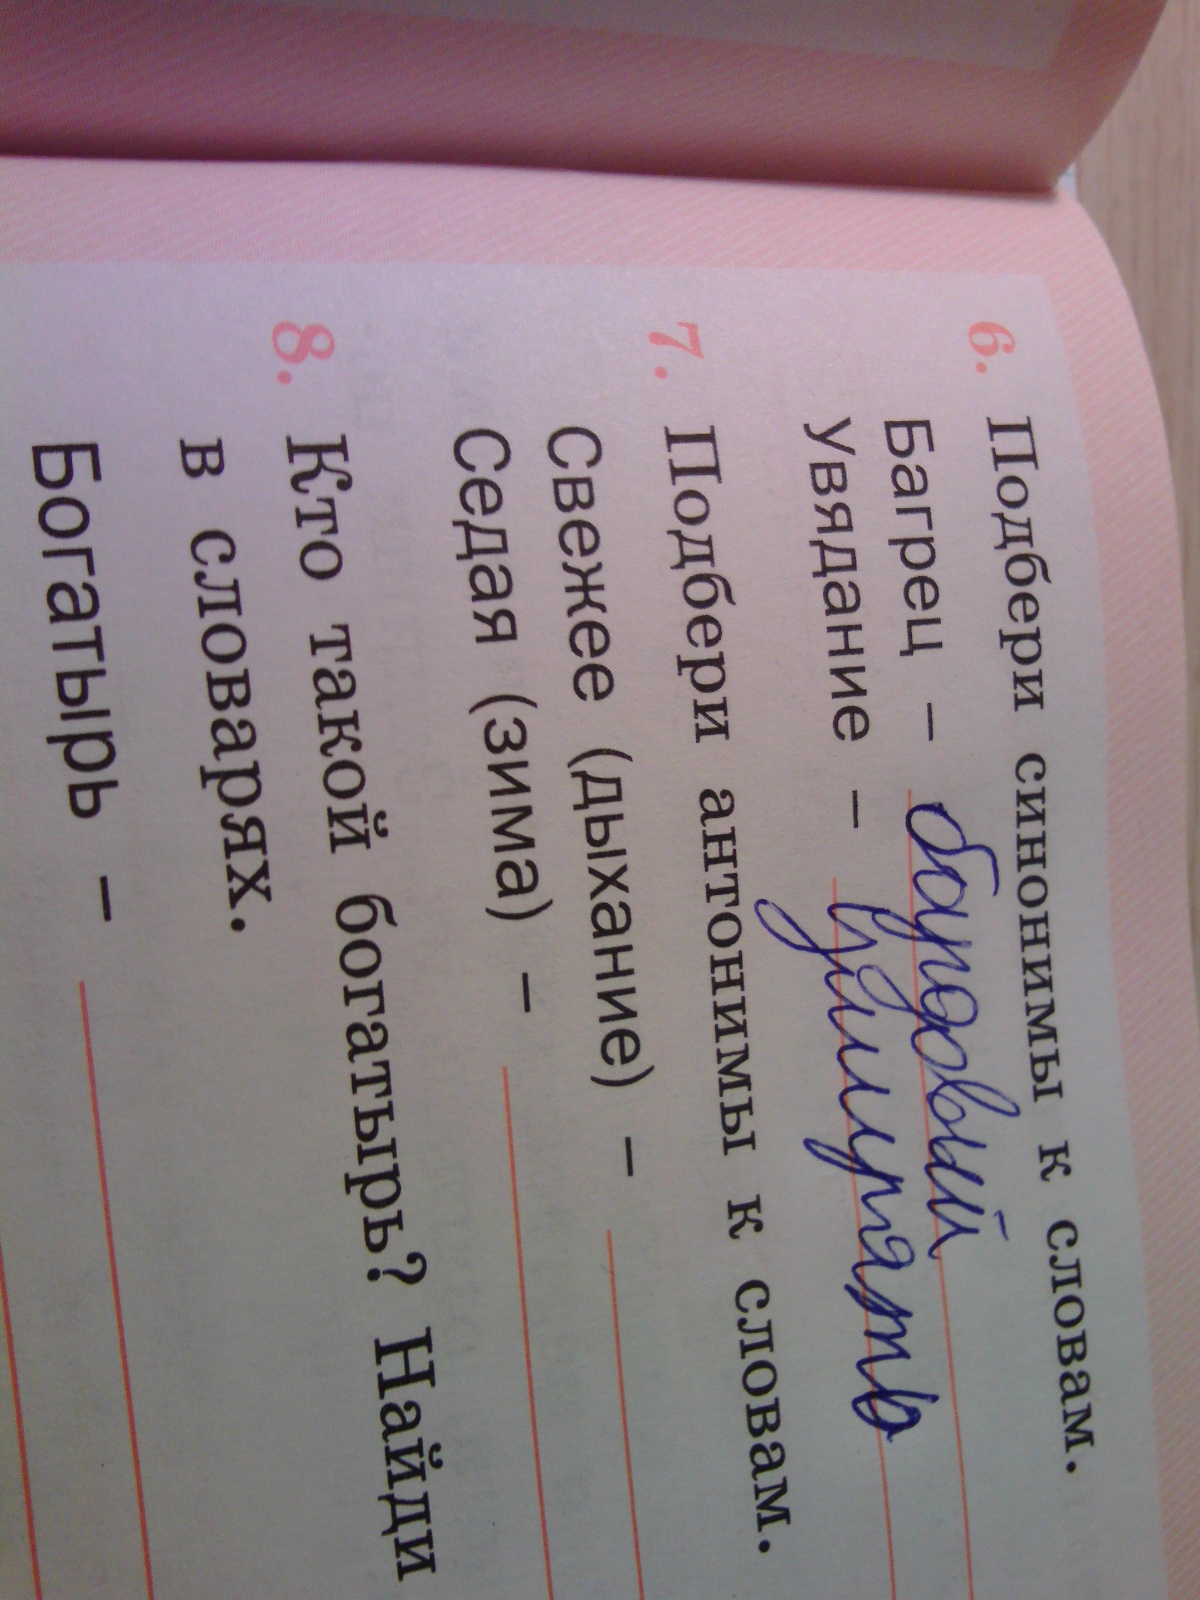 6. Подбери синонимы к словам.
Багрец – бордовый
Увядание – умирять
7. Подбери антонимы к словам.
Свежее (дыхание) –
Седая (зима) –
8. Кто такой богатырь? Найди
в словарях.
Богатырь –